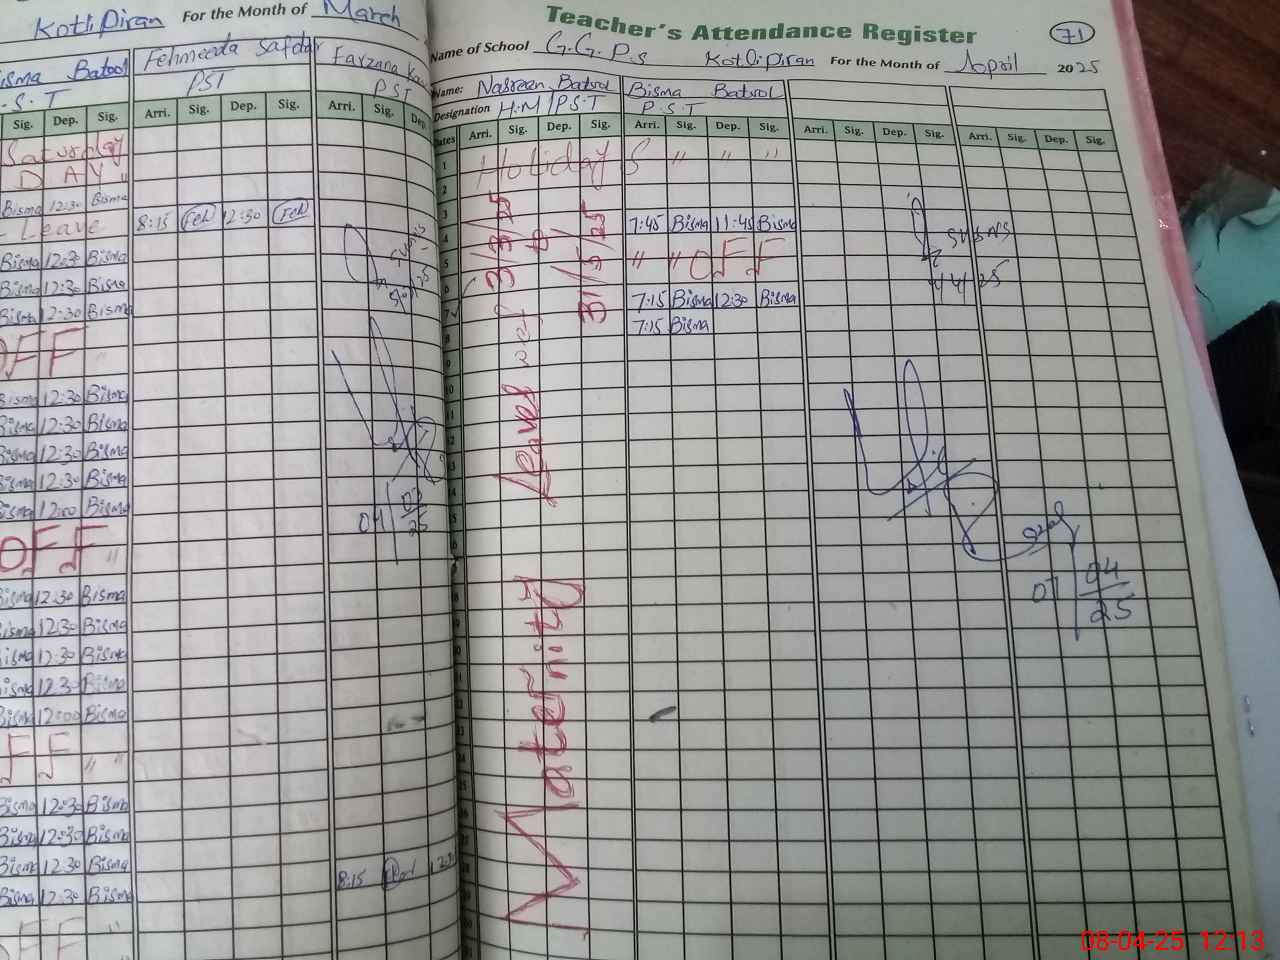 Kotli Piran For the Month of March
isma Batool Fehmeeda Safdar Farzana
P.S.T PST PST
Sig. Dep. Sig. Arri. Sig. Dep. Sig. Arri. Sig. Dep.
Saturday
DAY "
Bisma 12:30 Bisma
Leave 8:15 Feh 12:30 Feh
Bisma 12:30 Bisma
Bisma 12:30 Bisma
Bisma 12:30 Bisma
OFF "
Bisma 12:30 Bisma
Bisma 12:30 Bisma
Bisma 12:30 Bisma
Bisma 12:30 Bisma
Bisma 12:00 Bisma
04/03/25
OFF "
Bisma 12:30 Bisma
Bisma 12:30 Bisma
Bisma 12:30 Bisma
Bisma 12:30 Bisma
Bisma 12:00 Bisma
FF " "
Bisma 12:30 Bisma
Bisma 12:30 Bisma
Bisma 12:30 Bisma 8:15
Bisma 12:30 Bisma
OFF "
Teacher's Attendance Register 71
Name of School G.G.P.s Kotli Piran For the Month of April 2025
Name: Nasreen Batool Bisma Batool
Designation H.M/P.S.T P.S.T
Dates Arri. Sig. Dep. Sig. Arri. Sig. Dep. Sig. Arri. Sig. Dep. Sig. Arri. Sig. Dep. Sig.
1 Holiday S " " "
2
3
4 7:45 Bisma 11:45 Bisma
5 " " OFF
6
7 7:15 Bisma 12:30 Bisma
8 7:15 Bisma
9
10
11
12
13
14
15
16
Maternity Leave w.e.f 3/3/25 to 31/5/25
4/4/25
07/04/25
08-04-25 12:13